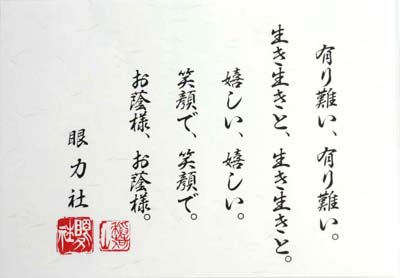 有り難い、有り難い。
生き生きと、生き生きと。
嬉しい、嬉しい。
笑顔で、笑顔で。
お蔭様、お蔭様。
眼力社